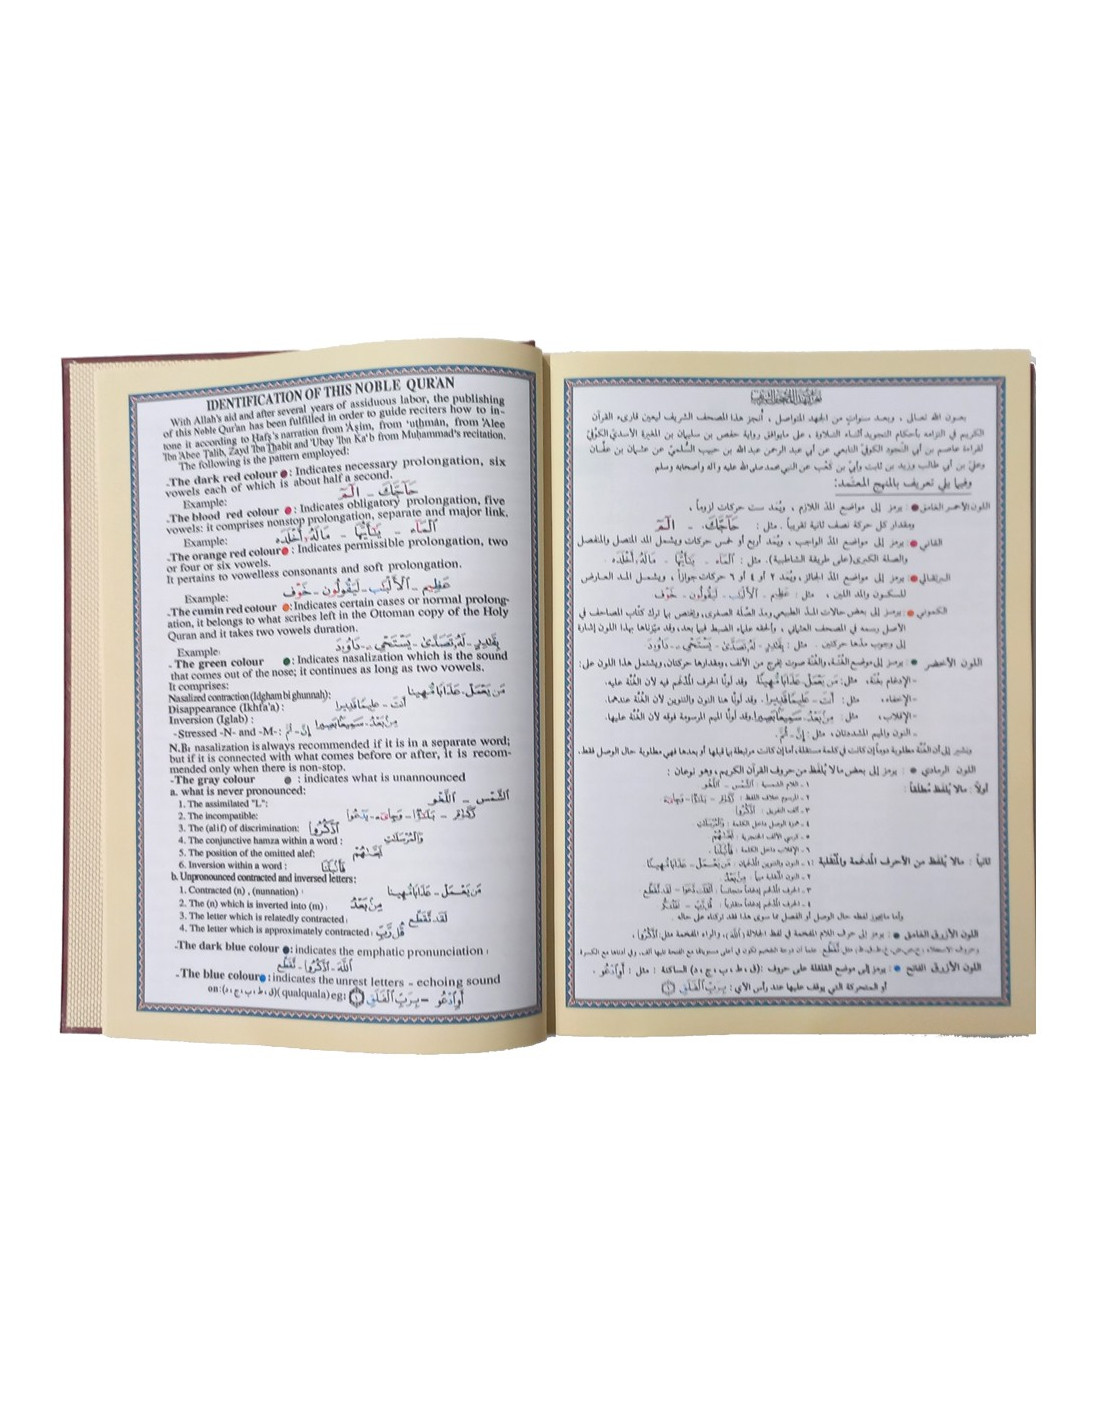 IDENTIFICATION OF THIS NOBLE QUR'AN
With Allah's aid and after several years of assiduous labor, the publishing
of this Noble Qur'an has been fulfilled in order to guide reciters how to in-
tone it according to Hafs's narration from 'Aṣim, from 'uthmān, from 'Alee
Ibn 'Abee Talib, Zayd Ibn Thabit and 'Ubay 'Ibn Ka'b from Muḥammad's recitation.
The following is the pattern employed:
-The dark red colour : Indicates necessary prolongation, six
vowels each of which is about half a second.
Example: حَآجَّكَ – الٓمٓ
-The blood red colour : Indicates obligatory prolongation, five
vowels: it comprises nonstop prolongation, separate and major link.
Example:
-The orange red colour : Indicates permissible prolongation, two
or four or six vowels.
It pertains to vowelless consonants and soft prolongation.
Example: عَظِيم – الْأَلْبَٰبِ – لَيَقُولُونَ – خَوْف
-The cumin red colour : Indicates certain cases or normal prolong-
ation, it belongs to what scribes left in the Ottoman copy of the Holy
Quran and it takes two vowels duration.
Example:
- The green colour : Indicates nasalization which is the sound
that comes out of the nose; it continues as long as two vowels.
It comprises:
Nasalized contraction (Idgham bi ghunnah): مَن يَعْمَلْ - عَذَابًا مُّهِينًا
Disappearance (Ikhfa'a):
Inversion (Iglab) :
-Stressed -N- and -M-: إِنَّ – ثُمَّ
N.B: nasalization is always recommended if it is in a separate word;
but if it is connected with what comes before or after, it is recom-
mended only when there is non-stop.
-The gray colour : indicates what is unannounced
a. what is never pronounced:
1. The assimilated "L": الشَّمْس – اللَّغْو
2. The incompatible:
3. The (alif) of discrimination: اذْكُرُوا
4. The conjunctive hamza within a word : وَالْمُرْسَلَٰتِ
5. The position of the omitted alef:
6. Inversion within a word :
b. Unpronounced contracted and inversed letters:
1. Contracted (n) , (nunnation) : مَن يَعْمَلْ – عَذَابًا مُّهِينًا
2. The (n) which is inverted into (m) : مِنۢ بَعْدُ
3. The letter which is relatedly contracted :
4. The letter which is approximately contracted : قُل رَّبِّ
-The dark blue colour : indicates the emphatic pronunciation :
-The blue colour : indicates the unrest letters - echoing sound
on: (ق ، ط ، ب ، ج ، د)( qualquala) eg:
بعون الله تعالى ، وبعد سنواتٍ من الجهد المتواصل ، أُنجز هذا المصحف الشريف ليعين قارىء القرآن
الكريم في التزامه بأحكام التجويد أثناء التلاوة ، على مايوافق رواية حفص بن سليمان بن المغيرة الأسدي الكوفي
لقراءة عاصم بن أبي النّجود الكوفي التابعي عن أبي عبد الرحمن عبد الله بن حبيب السُّلمي عن عثمان بن عفّان
وعليّ بن أبي طالب وزيد بن ثابت وأبيّ بن كعب عن النبي محمد صلى الله عليه وآله وأصحابه وسلم
وفيما يلي تعريف بالمنهج المعتمد:
اللون الأحمر الغامق : يرمز إلى مواضع المد اللازم ، ويُمد ست حركات لزوماً ،
ومقدار كل حركة نصف ثانية تقريباً . مثل : حَآجَّكَ . – الٓمٓ
القاني : يرمز إلى مواضع المد الواجب ، ويُمد أربع أو خمس حركات ويشمل المد المتصل والمنفصل
والصلة الكبرى (على طريقة الشاطبية). مثل :
البرتقالي : يرمز إلى مواضع المد الجائز، ويُمد ٢ أو ٤ أو ٦ حركات جوازاً ، ويشمل المد العارض
للسكون والمد اللين ، مثل : عَظِيم - الْأَلْبَٰبِ - لَيَقُولُونَ - خَوْف
الكموني : يرمز إلى بعض حالات المد الطبيعي ومد الصلة الصغرى، ويختص بما ترك كتّاب المصاحف في
الأصل رسمه في المصحف العثماني ، وألحقه علماء الضبط فيما بعد، وقد ميّزناها بهذا اللون إشارة
إلى وجوب مدّها حركتين . مثل :
اللون الأخضر : يرمز إلى موقع الغنّة، والغنّة صوت يخرج من الأنف، ومقدارها حركتان، ويشتمل هذا اللون على:
-الإدغام بغنّة، مثل: مَن يَعْمَلْ - عَذَابًا مُّهِينًا وقد لونّا الحرف المدغم فيه لأن الغنّة عليه.
-الإخفاء، مثل: وقد لونّا هنا النون والتنوين لأن الغنّة عندهما.
-الإقلاب، مثل: وقد لونّا الميم المرسومة فوقه لأن الغنّة عليها.
- النون والميم المشددتان، مثل : إِنَّ - ثُمَّ .
ونشير إلى أن الغنّة مطلوبة دوماً إن كانت في كلمة مستقلة، أما إن كانت مرتبطة بما قبلها أو بعدها فهي مطلوبة حال الوصل فقط.
اللون الرمادي : يرمز إلى بعض مالا يُلفظ من حروف القرآن الكريم ، وهو نوعان :
أولاً : مالا يُلفظ مطلقاً :
١ - اللام الشمسية :
٢ - المرسوم خلاف اللفظ :
٣ - ألف التفريق : اذْكُرُوا
٤ - همزة الوصل داخل الكلمة : وَالْمُرْسَلَٰتِ
٥ - كرسي الألف الخنجرية :
٦ - الإقلاب داخل الكلمة :
ثانياً : مالا يُلفظ من الأحرف المدغمة والمنقلبة :١ - النون والتنوين المدغمان : مَن يَعْمَلْ - عَذَابًا مُّهِينًا
٢ - النون المنقلبة ميماً : مِنۢ بَعْدُ
٣ - الحرف المدغم إدغاماً متجانساً :
٤ - الحرف المدغم إدغاماً متقارباً :
وأما مايجوز لفظه حال الوصل أو الفصل مما سوى هذا فقد تركناه على حاله .
اللون الأزرق الغامق : يرمز إلى حرف اللام المفخمة في لفظ الجلالة (الله)، والراء المفخمة مثل اذْكُرُوا ،
اللون الأزرق الفاتح : يرمز إلى موضع القلقلة على حروف :(ق ، ط ، ب ، ج ، د) الساكنة : مثل :
أو المتحركة التي يوقف عليها عند رأس الآي : بِرَبِّ الْفَلَقِ